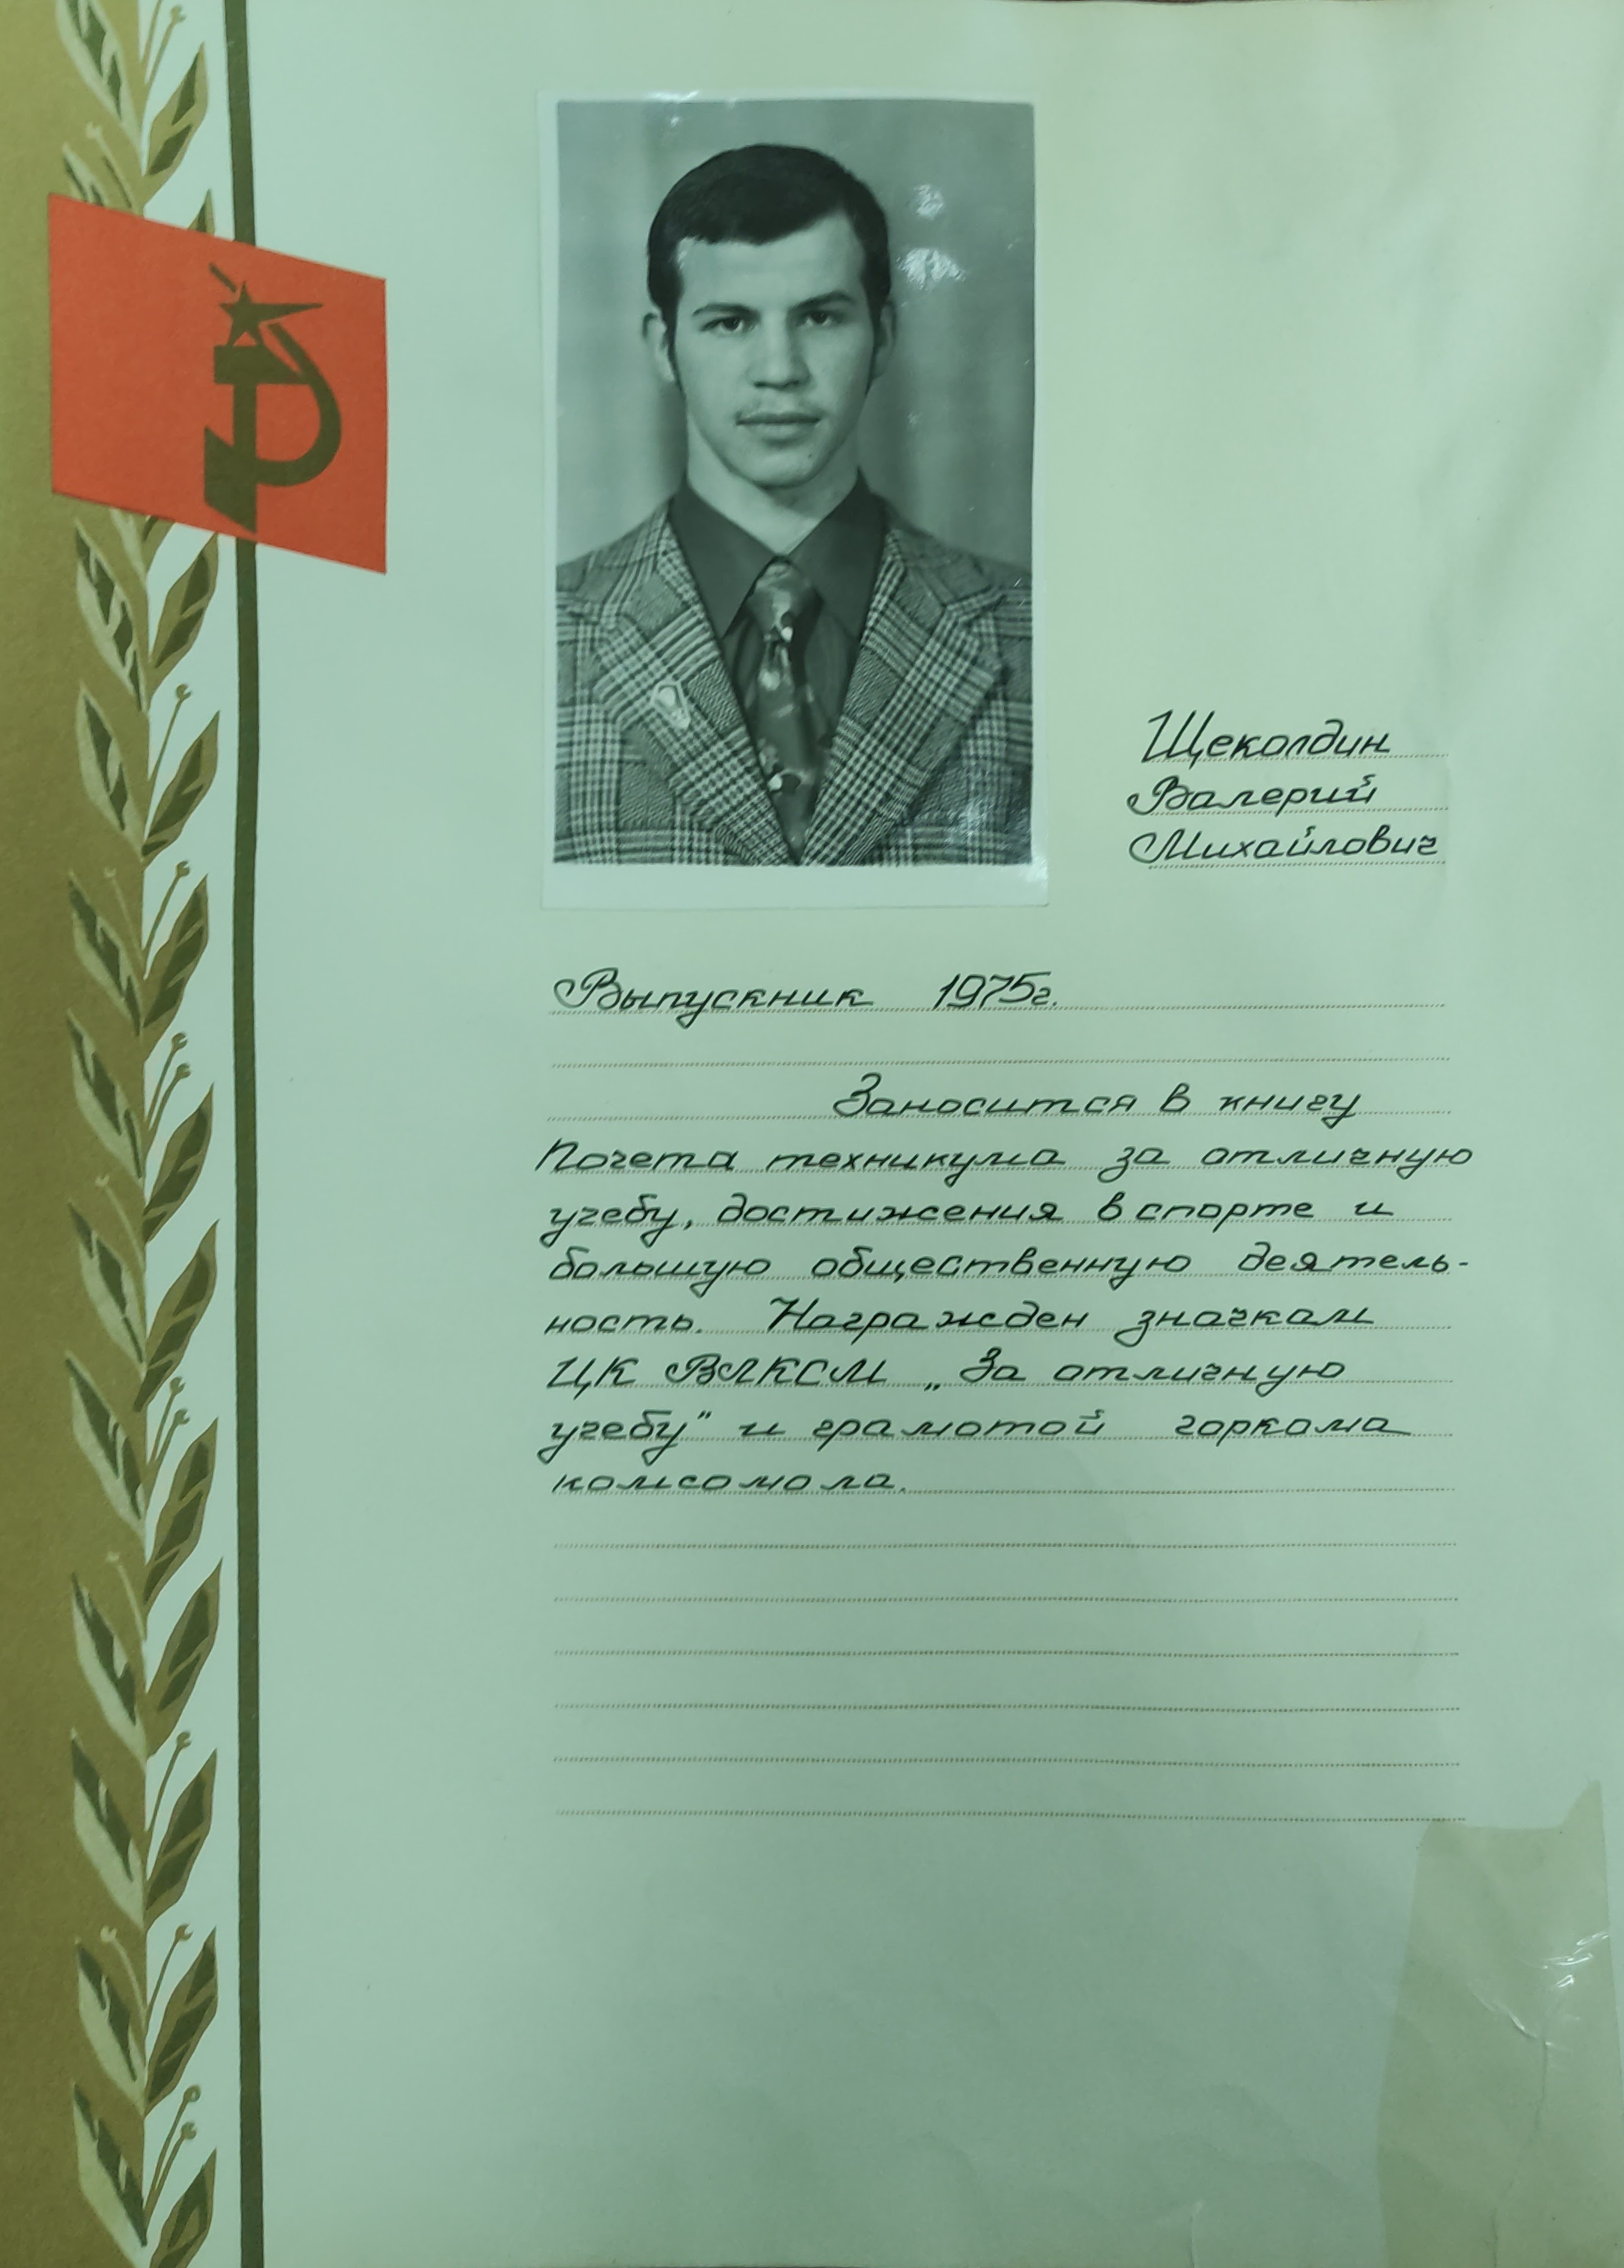 Щеколдин
Валерий
Михайлович
Выпускник 1975г.
Заносится в книгу
Почета техникума за отличную
учебу, достижения в спорте и
большую общественную деятель-
ность. Награжден значком
ЦК ВЛКСМ „За отличную
учебу" и грамотой горкома
комсомола.